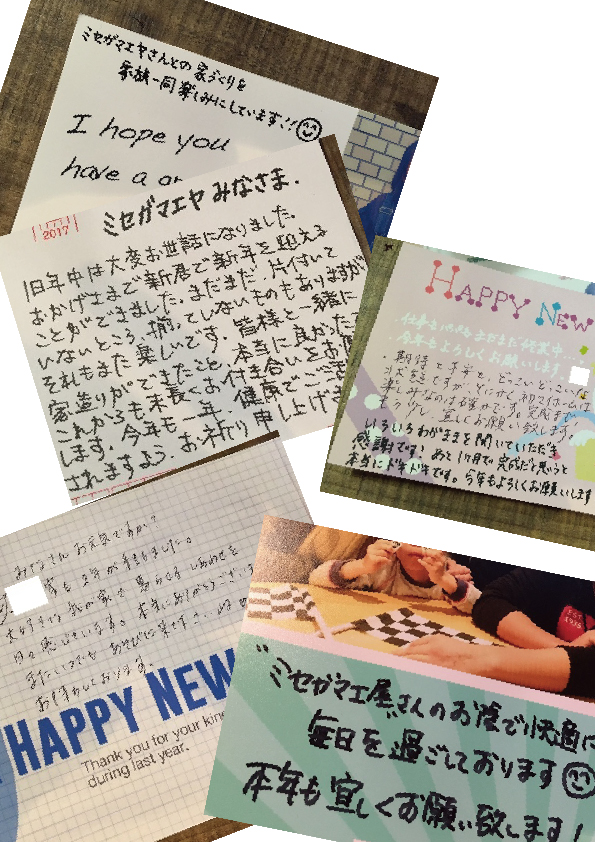 ミセガマエヤさんとの家づくりを
家族一同楽しみにしています!!
I hope you
have a
2017
ミセガマエヤ みなさま.
旧年中は大変お世話になりました。
おかげさまで新居で新年を迎える
ことができました。まだまだ、片付いて
いないところ、揃っていないものもありますが
それもまた楽しいです。皆様と一緒に
家造りができたこと、本当に良かったで
これからも末長くお付き合いをお願
します。今年も一年、健康でご
されますよう、お祈り申し上げま
HAPPY NEW
仕事も心もまだまだ修業中...
今年もよろしくお願いします
期待と不安と、どっこいどっこいな
状態ですが、とにかく初マイホームは
楽しみなのは確かです。完成まで
宜しくお願い致します。
いろいろわがままを聞いていただき
感謝です。あと1ヶ月で完成だと思うと
本当にドキドキです。今年もよろしくお願いします
みなさん お元気ですか?
家も 2年が経ちました。
大好きな 我が家で 暮らせる しあわせを
日々感じています。本当にありがとうございま
またいつでも あそびに来て下さい
お待ちしております。
HAPPY NEW
Thank you for your kind
during last year.
ミセガマエ屋さんのお陰で快適に
毎日を過ごしております
本年も宜しくお願い致します!